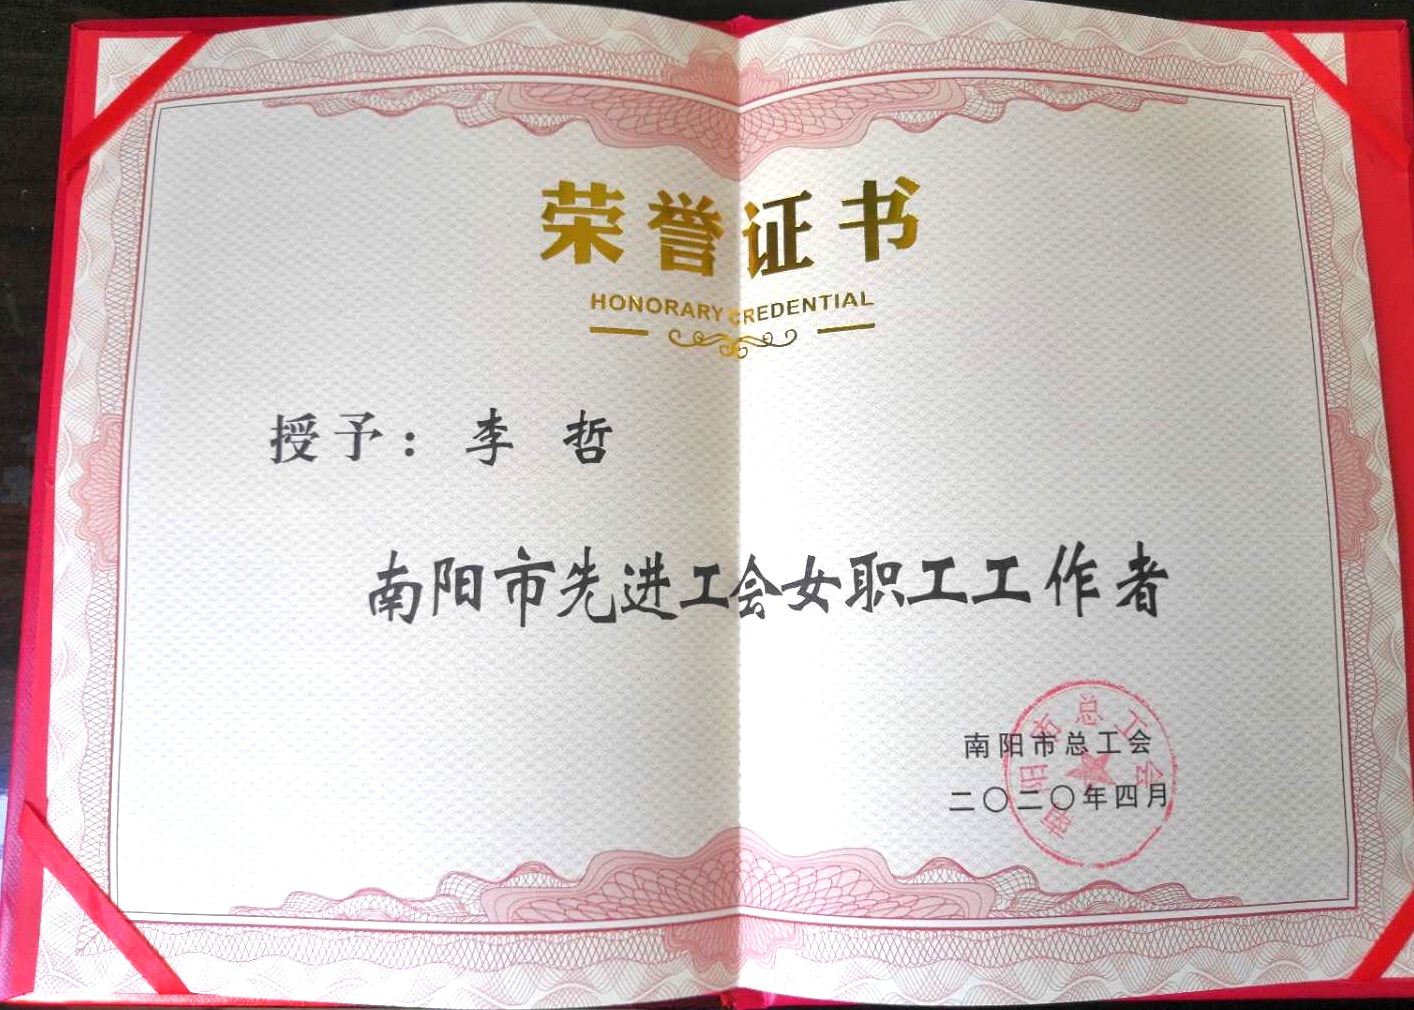 荣誉证书
HONORARY CREDENTIAL
授予：李 哲
南阳市先进工会女职工工作者
南阳市总工会
二〇二〇年四月
南阳市总工会